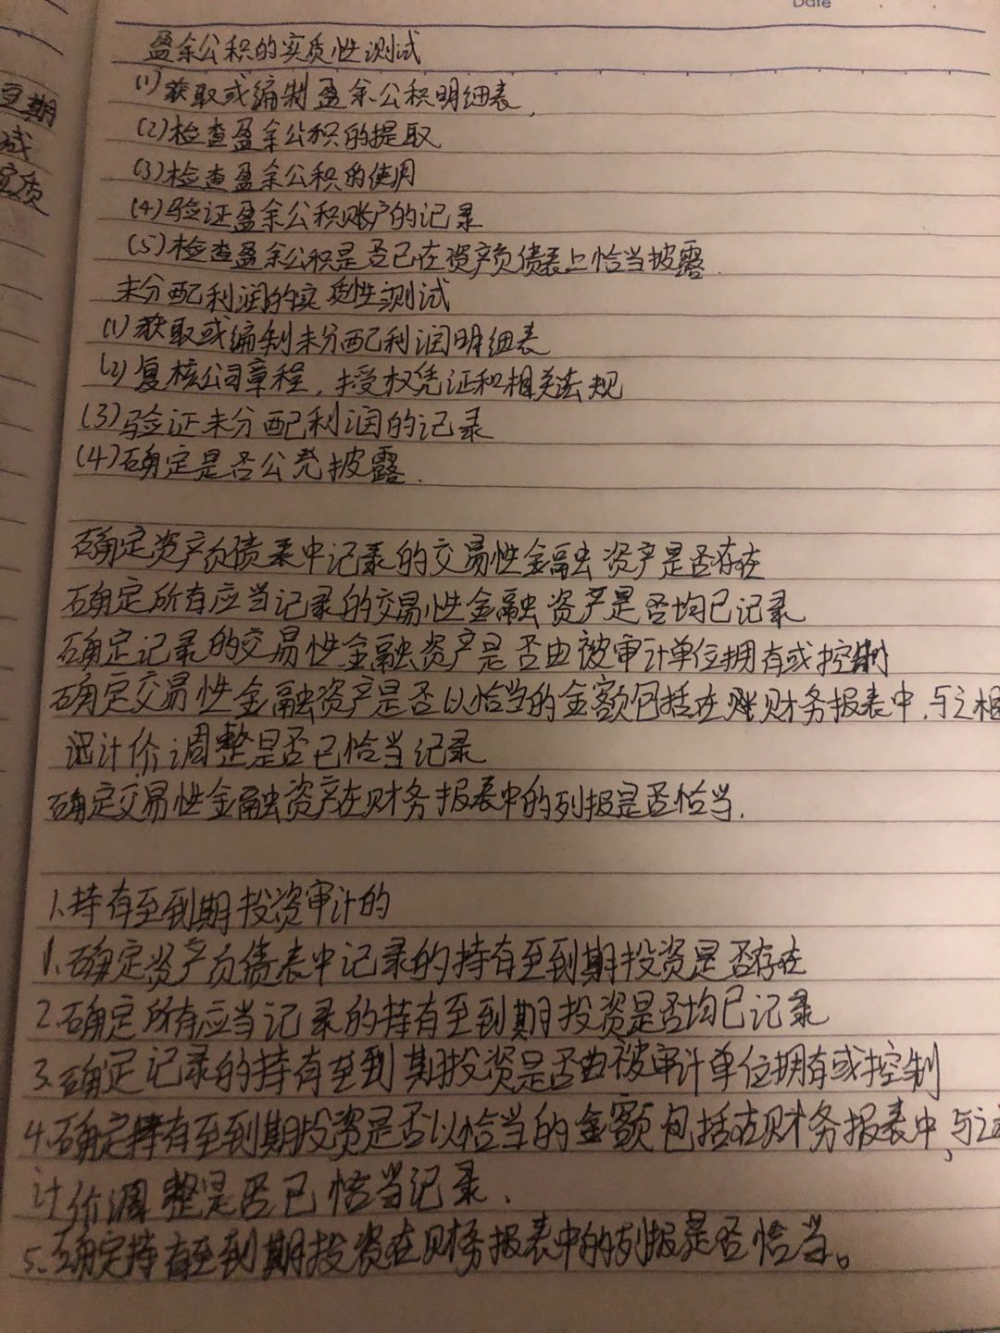 Date
盈余公积的实质性测试
(1)获取或编制盈余公积明细表.
(2)检查盈余公积的提取
(3)检查盈余公积的使用
(4)验证盈余公积账户的记录
(5)检查盈余公积是否已在资产负债表上恰当披露.
未分配利润的实质性测试
(1)获取或编制未分配利润明细表
(2)复核公司章程,授权凭证和相关法规
(3)验证未分配利润的记录
(4)确定是否公允披露.
确定资产负债表中记录的交易性金融资产是否存在
确定所有应当记录的交易性金融资产是否均已记录
确定记录的交易性金融资产是否由被审计单位拥有或控制
确定交易性金融资产是否以恰当的金额包括在财务报表中,与之相
计价调整是否已恰当记录
确定交易性金融资产在财务报表中的列报是否恰当.
1.持有至到期投资审计的
1.确定资产负债表中记录的持有至到期投资是否存在
2.确定所有应当记录的持有至到期投资是否均已记录
3.确定记录的持有至到期投资是否由被审计单位拥有或控制
4.确定持有至到期投资是否以恰当的金额包括在财务报表中,与之
计价调整是否已恰当记录.
5.确定持有至到期投资在财务报表中的列报是否恰当。
至期
实质